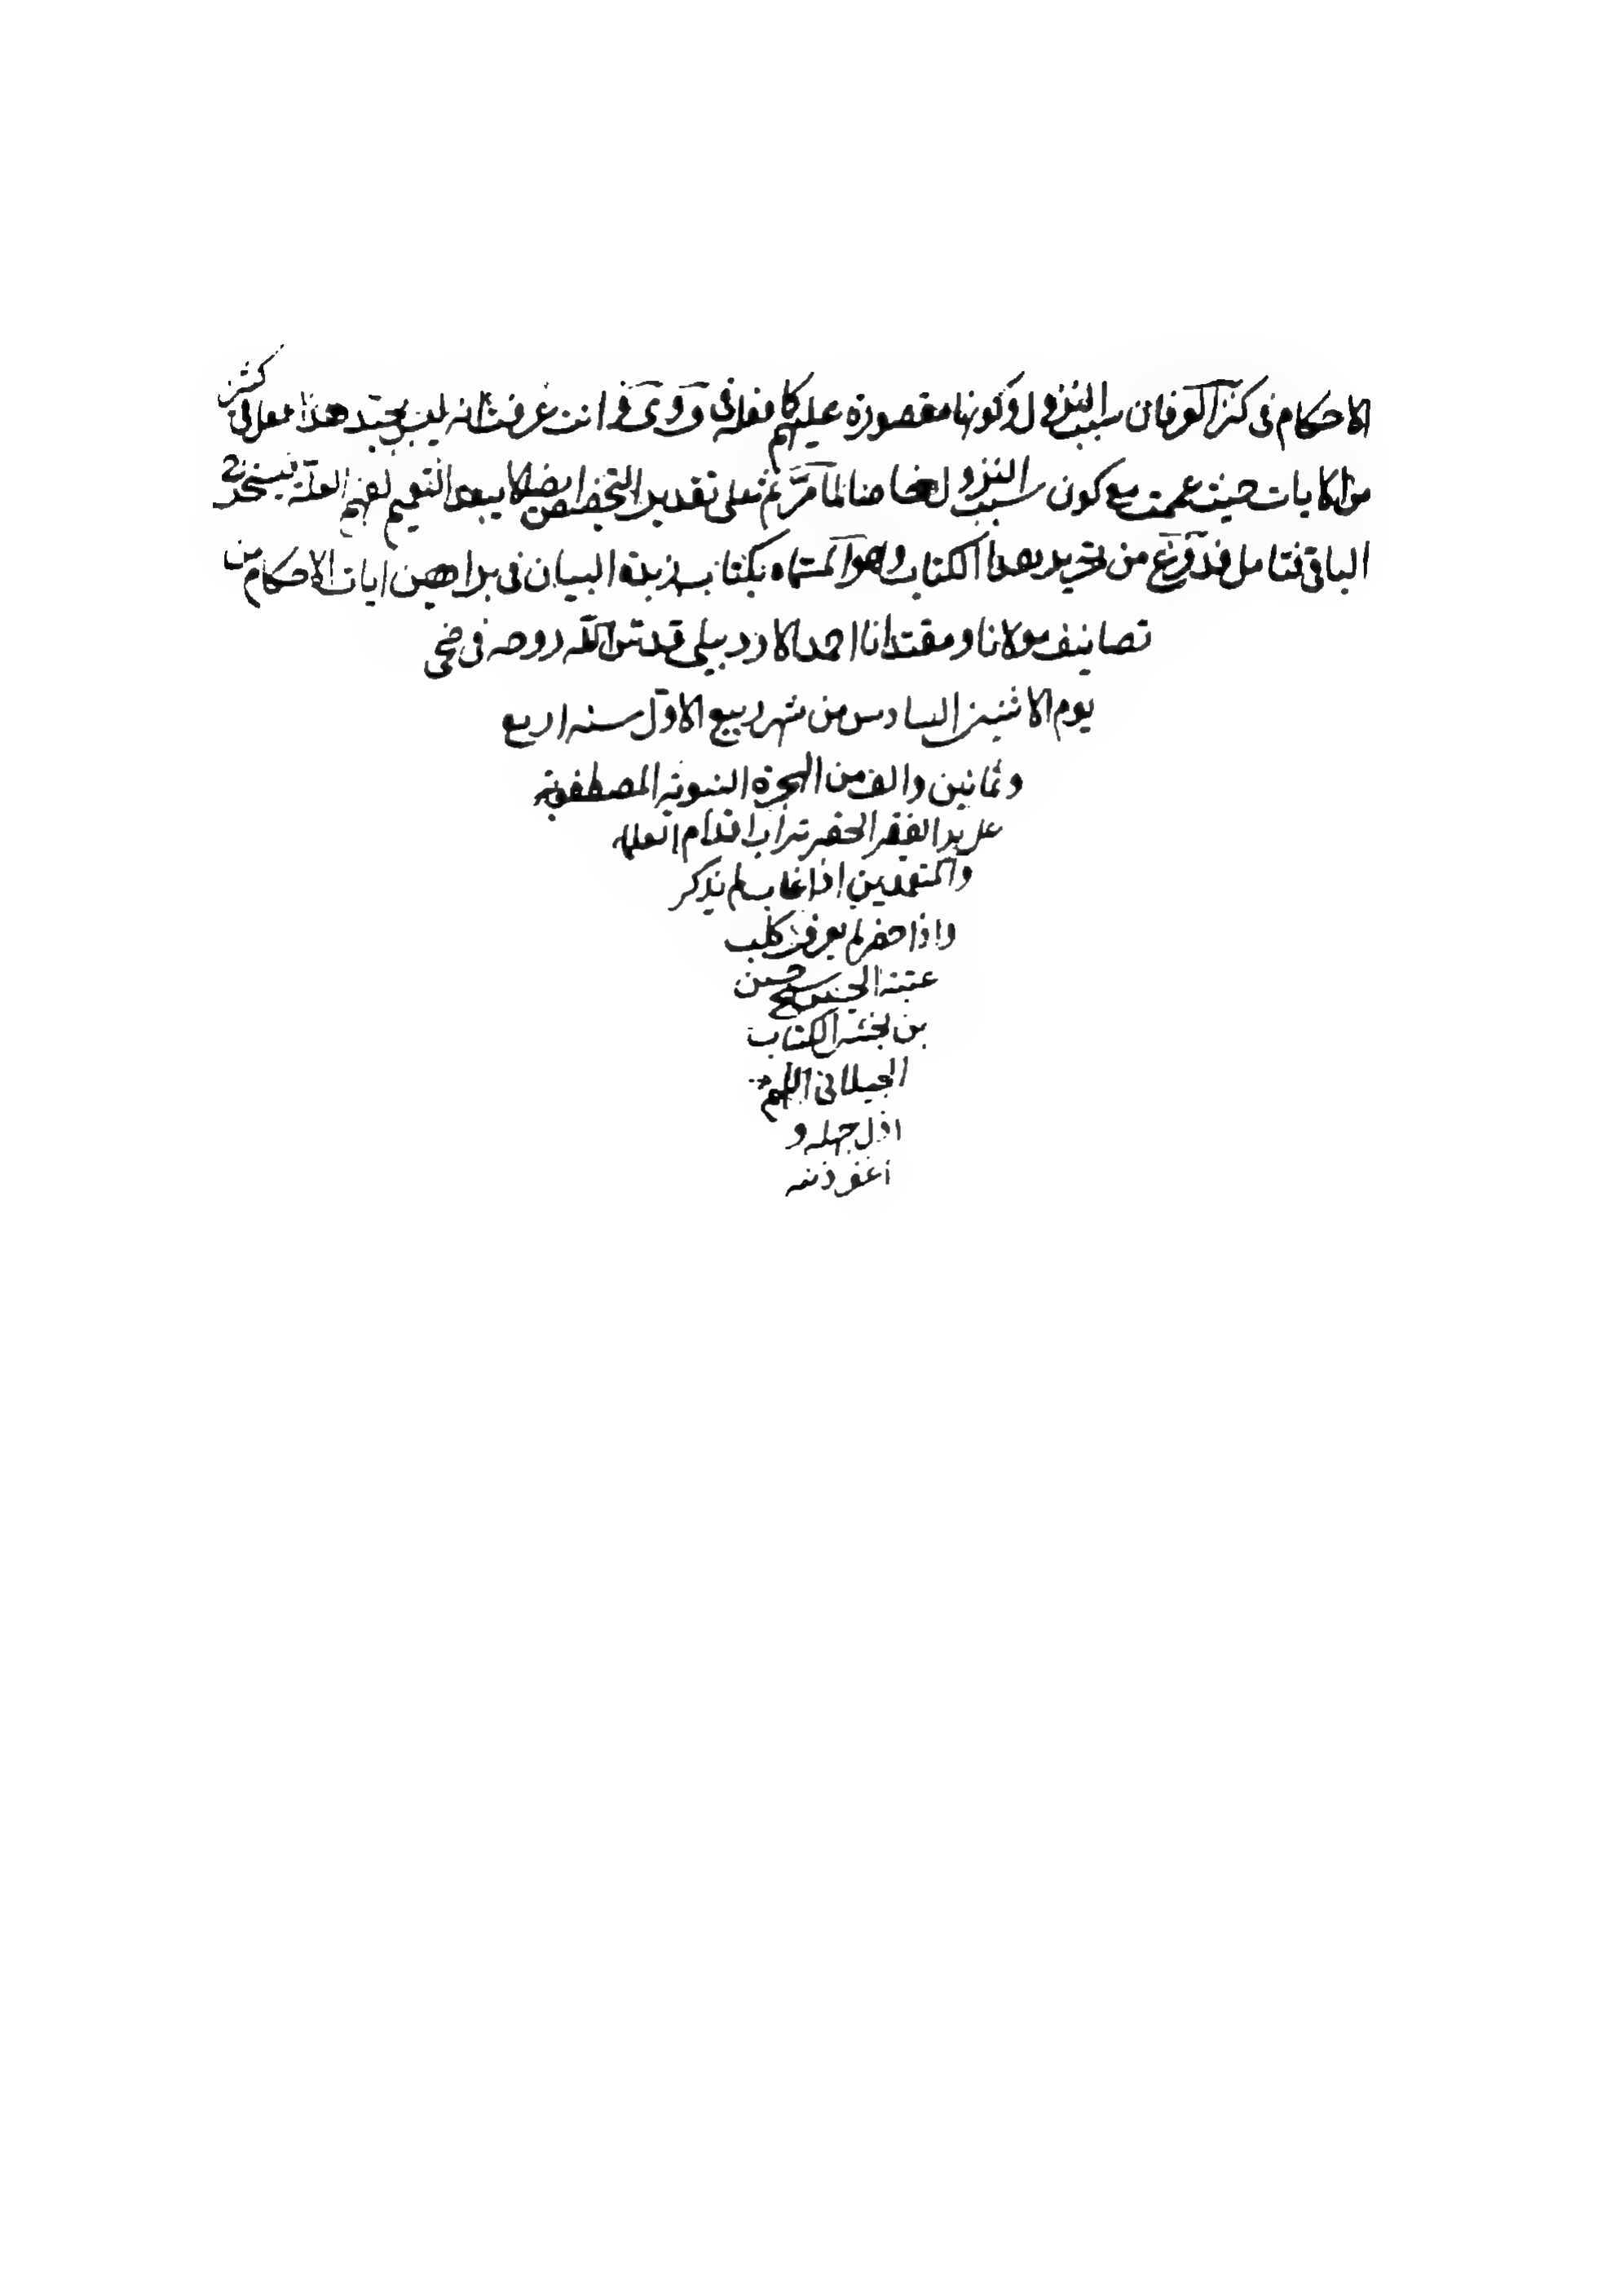 الاحكام فى كنز العرفان سبب النزول وكونها مقصورة عليهم كما فعله فى ق وى ف وانت عرفت انه ليس بجيد هذا فعل فى كثير
من الايات حيث عممت مع كون سبب النزول خاصا لما مر ثم على تقدير التخصيص لا يبعد التعميم لفهم العلة فيسخر فى
الباقى فتامل قد فرغ من تحرير هذا الكتاب وهو المسماه بكتاب زبدة البيان فى براهين ايات الاحكام من
تصانيف مولانا ومقتدانا احمد الاردبيلى قدس الله روحه فى ضحى
يوم الاثنين السادس من شهر ربيع الاول سنه اربع
وثمانين والف من الهجرة النبوية المصطفوية
على يد الفقير الحقير تراب اقدام العلماء
والمتعبدين اذا غاب لم يذكر
واذا حضر لم يعرف كلب
عتبة الحسين حسين
بن الكتاب
الجيلانى اللهم
ازل جهله و
اغفر ذنبه